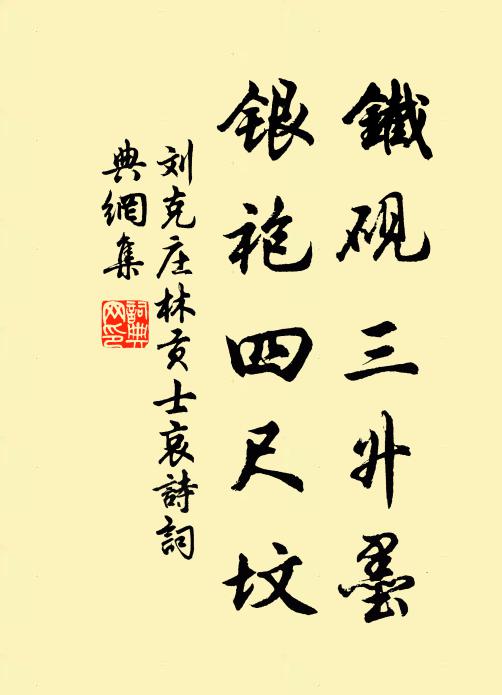 鐵硯三升墨
銀袍四尺坟
刘克庄林贡士哀詩詞
典網集
詞典
网印